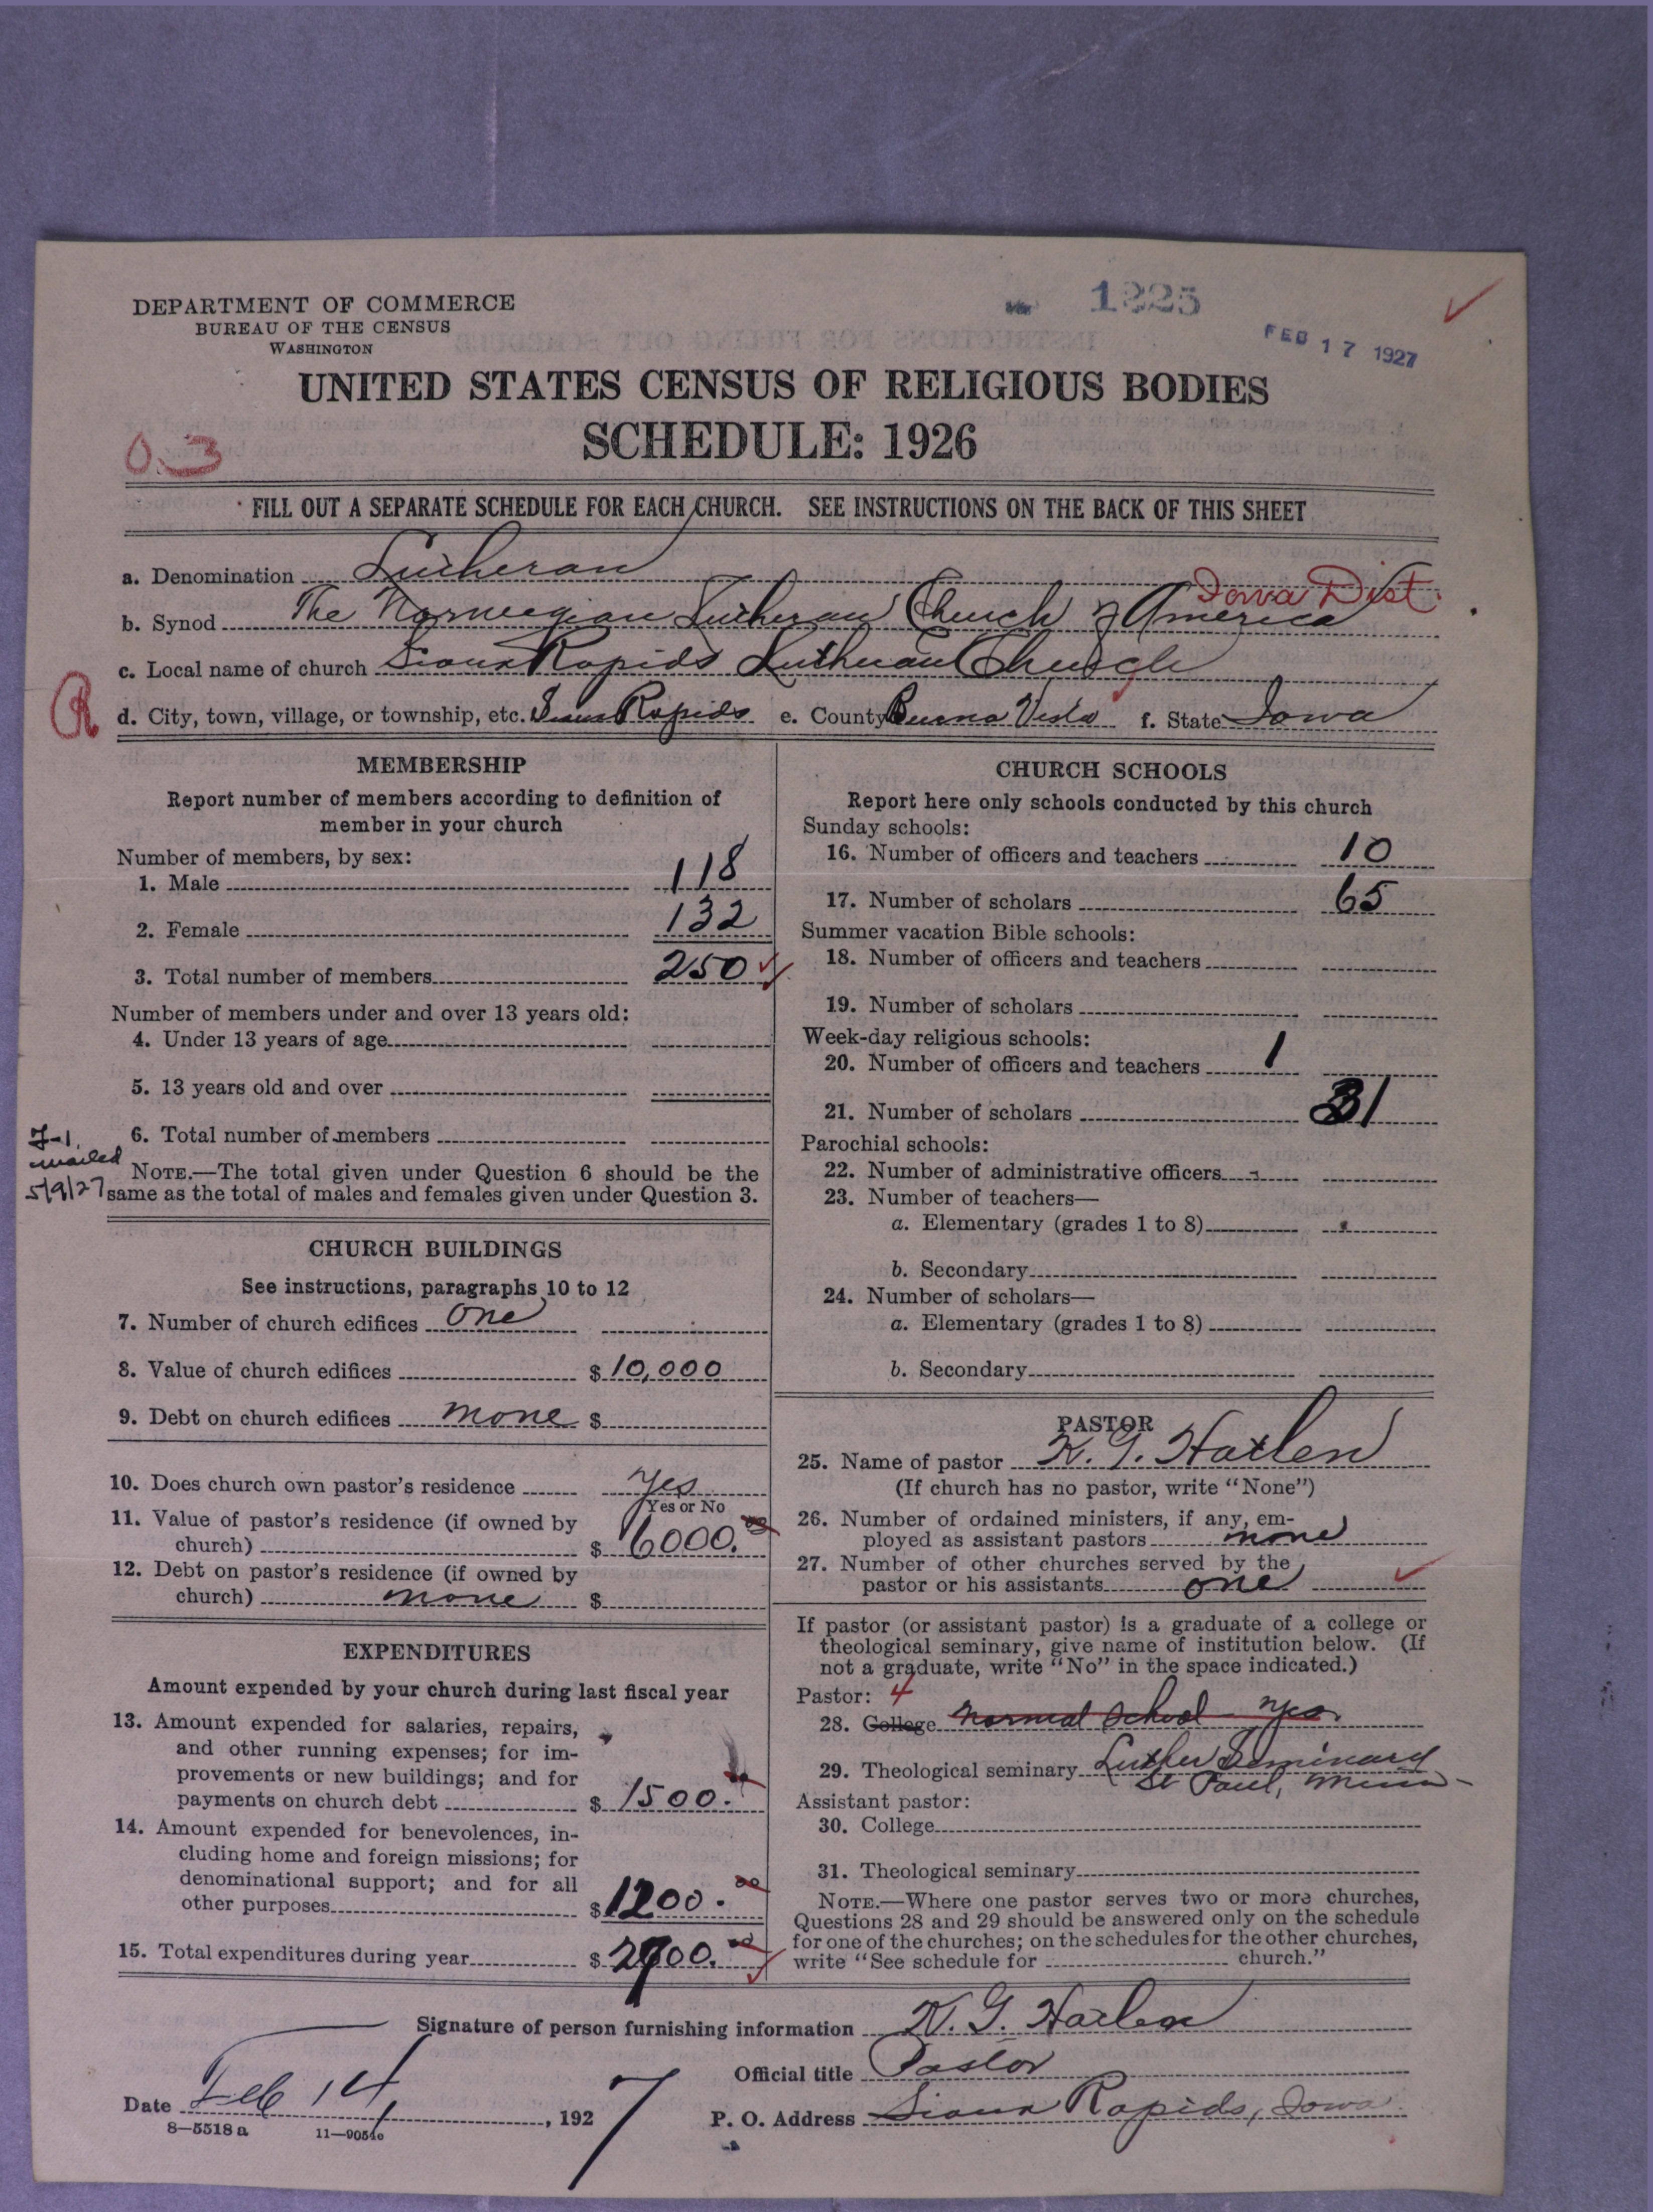 DEPARTMENT OF COMMERCE
BUREAU OF THE CENSUS
WASHINGTON
1225
FEB 17 1927
UNITED STATES CENSUS OF RELIGIOUS BODIES
SCHEDULE: 1926
0.3
FILL OUT A SEPARATE SCHEDULE FOR EACH CHURCH. SEE INSTRUCTIONS ON THE BACK OF THIS SHEET
a. Denomination Lutheran
Iowa Dist.
b. Synod The Norwegian Lutheran Church of America
c. Local name of church Sioux Rapids Lutheran Church
R
d. City, town, village, or township, etc. Sioux Rapids e. County Buena Vista f. State Iowa
MEMBERSHIP
Report number of members according to definition of
member in your church
Number of members, by sex:
1. Male 118
2. Female 132
3. Total number of members 250
Number of members under and over 13 years old:
4. Under 13 years of age
5. 13 years old and over
6. Total number of members
7-1.
mailed
5/9/27
NOTE.—The total given under Question 6 should be the
same as the total of males and females given under Question 3.
CHURCH BUILDINGS
See instructions, paragraphs 10 to 12
7. Number of church edifices One
8. Value of church edifices $ 10,000
9. Debt on church edifices none $
10. Does church own pastor's residence yes
Yes or No
11. Value of pastor's residence (if owned by
church) $ 6000.00
12. Debt on pastor's residence (if owned by
church) none $
EXPENDITURES
Amount expended by your church during last fiscal year
13. Amount expended for salaries, repairs,
and other running expenses; for im-
provements or new buildings; and for
payments on church debt $ 1500.
14. Amount expended for benevolences, in-
cluding home and foreign missions; for
denominational support; and for all
other purposes $ 1200.00
15. Total expenditures during year $ 2700.00
CHURCH SCHOOLS
Report here only schools conducted by this church
Sunday schools:
16. Number of officers and teachers 10
17. Number of scholars 65
Summer vacation Bible schools:
18. Number of officers and teachers
19. Number of scholars
Week-day religious schools:
20. Number of officers and teachers 1
21. Number of scholars 31
Parochial schools:
22. Number of administrative officers
23. Number of teachers—
a. Elementary (grades 1 to 8)
b. Secondary
24. Number of scholars—
a. Elementary (grades 1 to 8)
b. Secondary
PASTOR
25. Name of pastor K. G. Hatlen
(If church has no pastor, write "None")
26. Number of ordained ministers, if any, em-
ployed as assistant pastors none
27. Number of other churches served by the
pastor or his assistants one
If pastor (or assistant pastor) is a graduate of a college or
theological seminary, give name of institution below. (If
not a graduate, write "No" in the space indicated.)
Pastor: 4
28. College Normal School yes.
29. Theological seminary Luther Seminary
St Paul, Minn
Assistant pastor:
30. College
31. Theological seminary
NOTE.—Where one pastor serves two or more churches,
Questions 28 and 29 should be answered only on the schedule
for one of the churches; on the schedules for the other churches,
write "See schedule for church."
Signature of person furnishing information K. G. Hatlen
Official title Pastor
Date Feb 14, 1927
P. O. Address Sioux Rapids, Iowa
8—5518 a 11—9054c